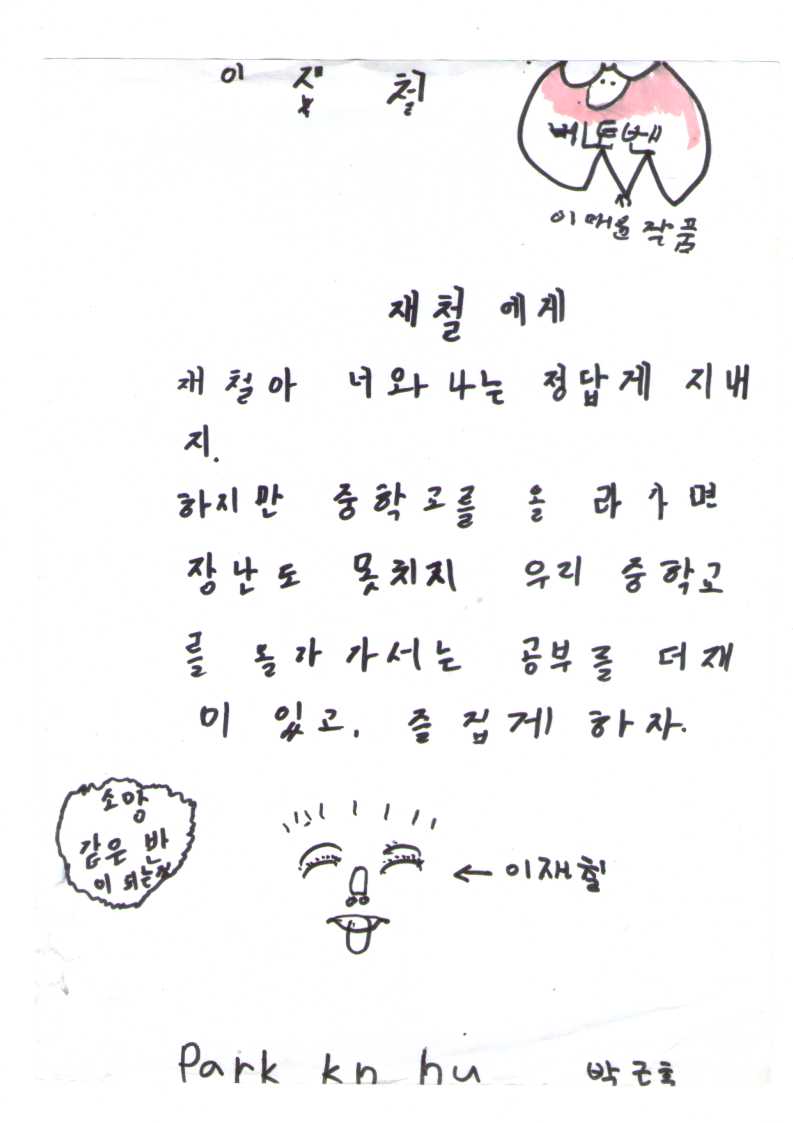 이 철
베토벤
작품
재철에게
재철아 너와 나는 정답게 지내
지.
하지만 중학고를 올라가면
장난도 못치지 우리 중학고
를 올라가서는 공부를 더 재
미 있고, 즐집게 하자.
소망
같은 반
이 되는것
← 이재철
Park kn hu 박근호